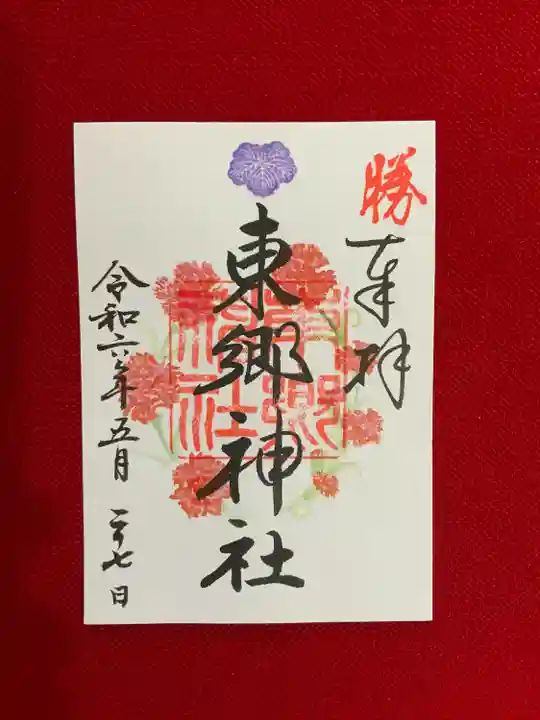 勝
奉拝
東郷神社
東郷神社
令和六年五月二十七日